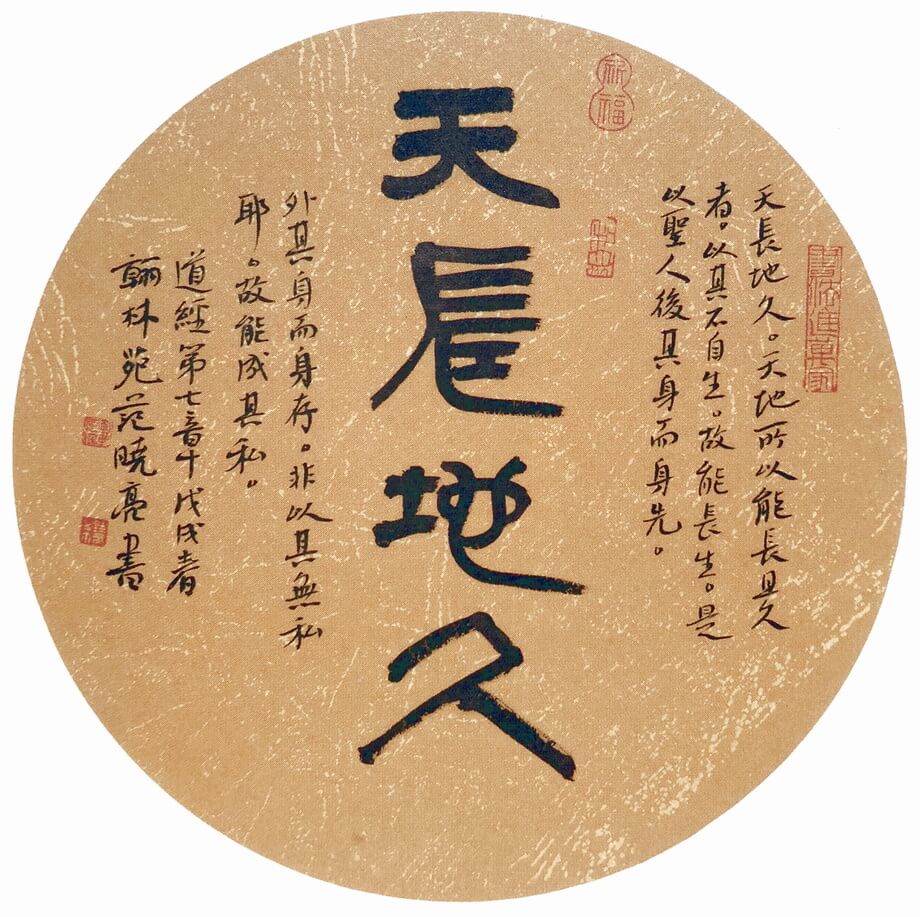 書法進萬家
天長地久。天地所以能長且久
者。以其不自生。故能長生。是
以聖人後其身而身先。
祈福
天長地久
外其身而身存。非以其無私
耶。故能成其私。
道經第七章戊戌春
翰林苑范曉亮書